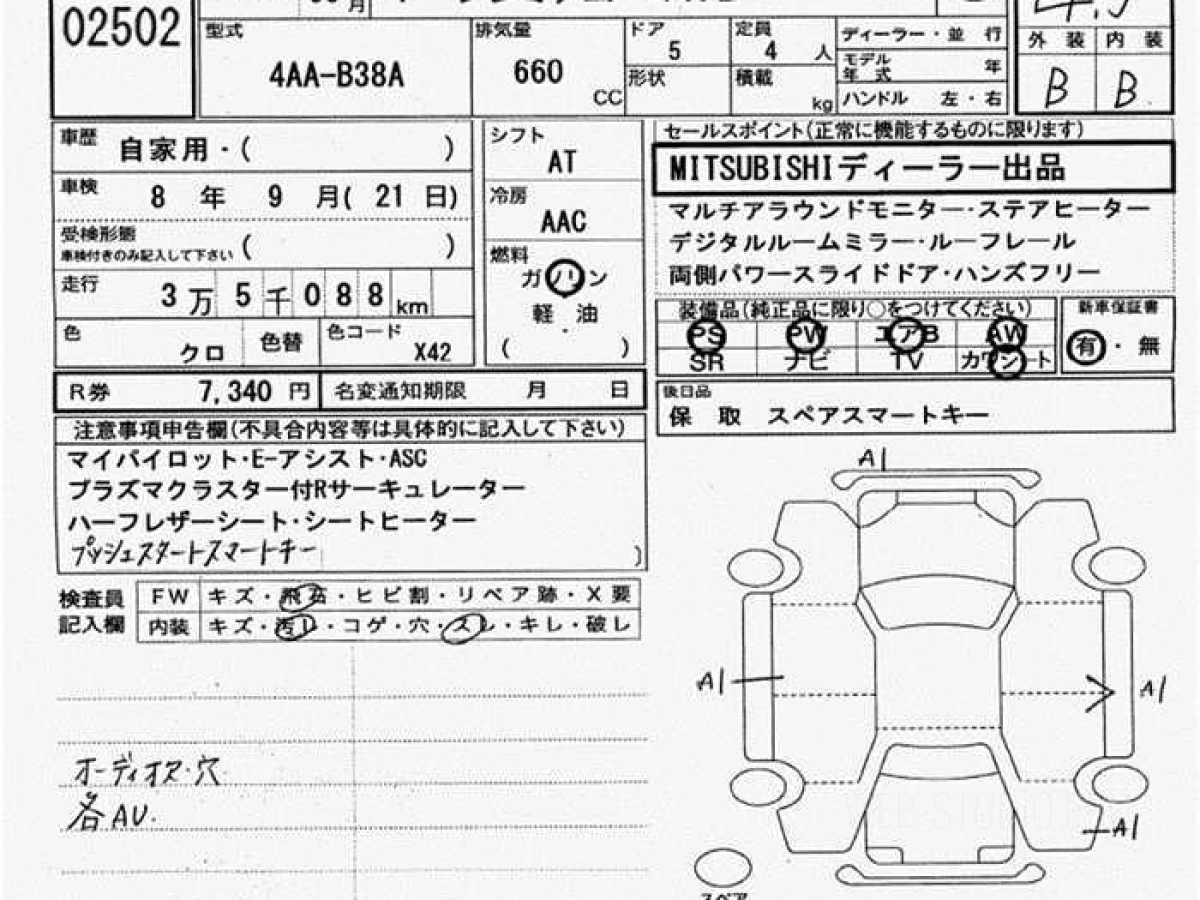 02502
月
4.5
型式
4AA-B38A
排気量
660
CC
ドア
5
定員
4 人
形状
積載
kg
ディーラー・並 行
モデル年式 年
ハンドル 左・右
外 装 内 装
B B
車歴
自家用・( )
車検
8 年 9 月( 21 日)
受検形態
車検付きのみ記入して下さい ( )
走行
3 万 5 千 088 km
色
クロ
色替
色コード
X42
シフト
AT
冷房
AAC
燃料
ガソリン
軽 油
( )
セールスポイント(正常に機能するものに限ります)
MITSUBISHIディーラー出品
マルチアラウンドモニター・ステアヒーター
デジタルルームミラー・ルーフレール
両側パワースライドドア・ハンズフリー
装備品(純正品に限り○をつけてください)
PS PW エアB AW
SR ナビ TV カワシート
新車保証書
有・無
R券 7,340 円
名変通知期限 月 日
後日品
保 取 スペアスマートキー
注意事項申告欄(不具合内容等は具体的に記入して下さい)
マイパイロット・E-アシスト・ASC
プラズマクラスター付Rサーキュレーター
ハーフレザーシート・シートヒーター
プッシュスタートスマートキー
)
検査員
記入欄
FW キズ・飛石・ヒビ割・リペア跡・X要
内装 キズ・汚し・コゲ・穴・スレ・キレ・破レ
オーディオスレ・穴
各AU.
A1
A1
A1
A1
スペア